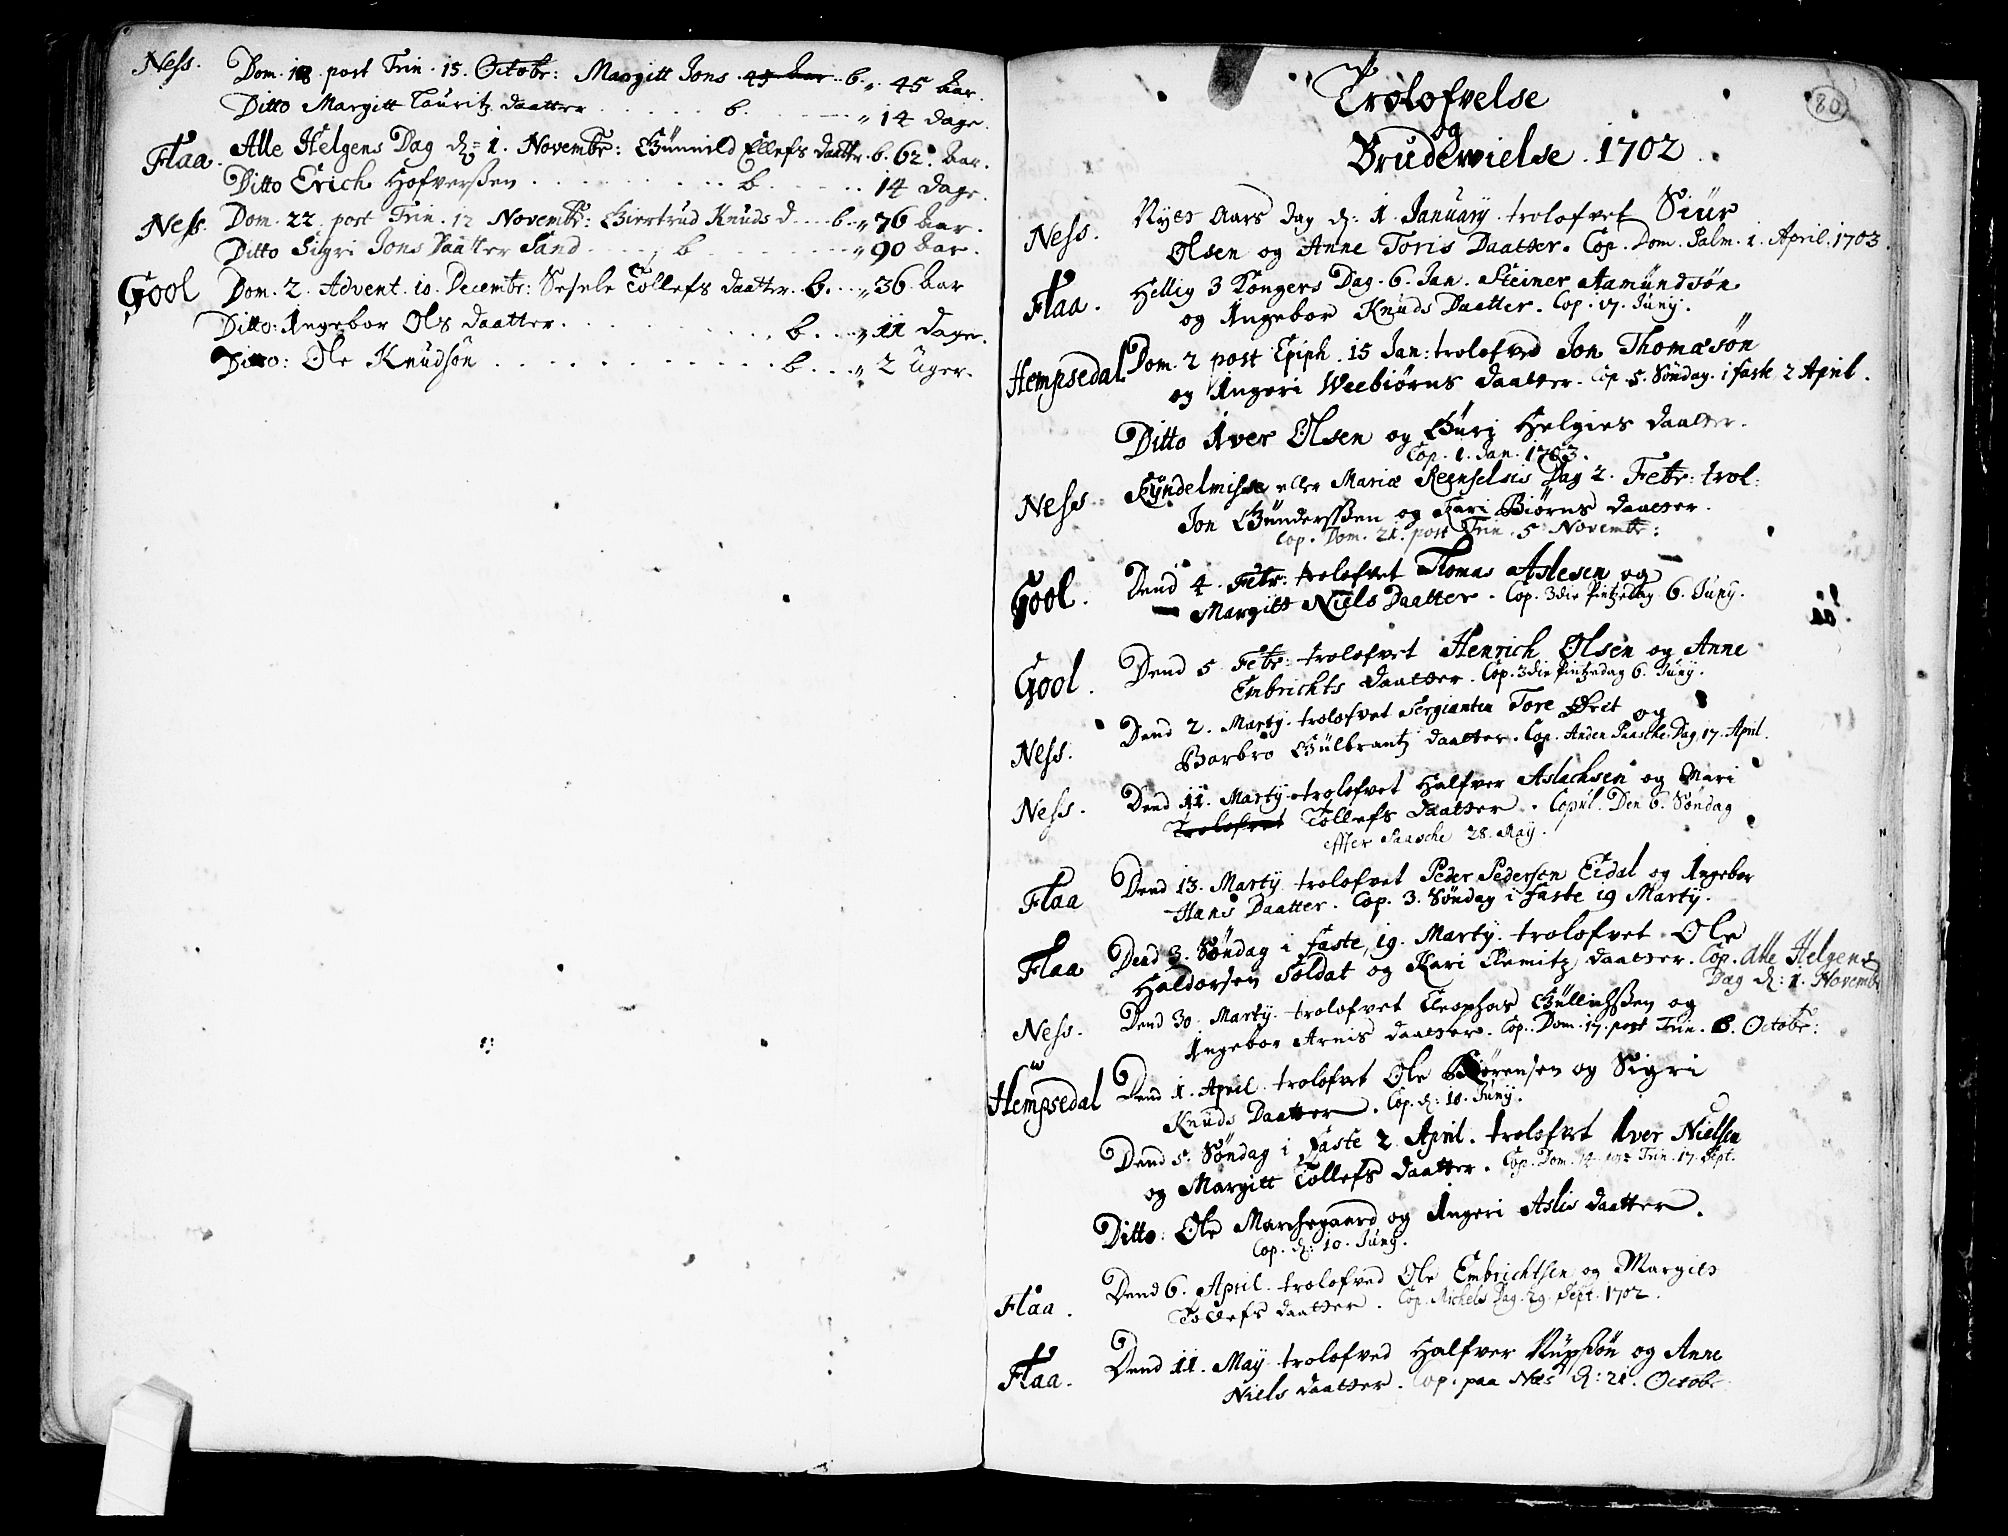 Ness. Dom. 18. post Trin. 15. Octobr: Margitt Jons 45 Aar b. 45 Aar.
Ditto Margitt Lauritz daatter b. 14 dage.
Flaa. Alle Helgens Dag d. 1. Novembr: Gunnild Ellefs daatter b. 62. Aar.
Ditto Erich Hofverssen b. 14 dage.
Ness. Dom. 22. post Trin. 12 Novembr: Giertrud Knuds d. b. 76 Aar.
Ditto Sigri Jons Daatter Sand b. 90 Aar.
Gool Dom. 2. Advent. 10. Decembr: Sesele Tollefs daatter b. 36 Aar
Ditto: Ingebor Ols daatter. b. 11 dage.
Ditto: Ole Knudsøn b. 2 Uger.
80
Trolofvelse
og
Brudewielse. 1702
Ness. Nyes Aars dag d: 1 January trolofvet Siur
Olsen og Anne Toris Daatter. Cop. Dom. Palm. 1. April. 1703.
Flaa. Hellig 3 Kongers Dag. 6. Jan. Steiner Aamundsøn
og Ingebor Knuds Daatter. Cop. 17. Juny.
Hempsedal Dom. 2 post Epiph. 15 Jan: trolofved Jon Thomæsøn
og Ingeri Weebiørns daatter. Cop. 5. Søndag i faste 2 April.
Ditto Iver Olsen og Guri Helgies daatter.
Cop. 1. Jan. 1703.
Ness. Kyndelmisse eller Mariæ Reenselsis Dag 2. Febr: trol:
Jon Gunderssen og Kari Biørns daatter.
Cop. Dom. 21. post Trin. 5 Novembr:
Gool. Dend 4. Febr: trolofvet Thomas Aslesen og
Margitt Niels Daatter. Cop. 3die Pintzedag 6. Juny.
Gool. Dend 5 Febr: trolofvet Henrich Olsen og Anne
Embrichts daatter. Cop. 3die Pintzedag 6. Juny.
Ness. Dend 2. Marty. trolofvet Sergianten Tore Ørit og
Barbro Gulbrantz daatter. Cop. Anden Paasche Dag. 17. April.
Ness. Dend 11. Marty trolofvet Halfver Aslachsen og Mari
Trolofvet Tollefs daatter. Copul. Den 6. Søndag
effter Paasche 28. May.
Flaa Dend 13. Marty trolofvet Peder Pedersen Eidal og Ingebor
Hans Daatter. Cop. 3. Søndag i faste 19 Marty.
Flaa Dend 3. Søndag i faste, 19. Marty. trolofvet Ole
Haldorsen Soldat og Kari Clemitz daatter. Cop. Alle Helgens
Dag d: 1. Novembr
Ness. Dend 30. Marty. trolofvet Cleophas Gullichssen og
Ingebor Arnis daatter. Cop. Dom. 17. post Trin. 8. Octobr:
Hempsedal Dend 1. April trolofvet Ole Biørensen og Sigri
Knuds Daatter. Cop. d: 10. Juny.
Dend 5. Søndag i Faste 2 April. trolofvet Iver Nielsen
og Margitt Tollefs daatter. Cop. Dom. 14. post Trin. 17. Sept.
Ditto: Ole Marchegaard og Ingeri Aslis daatter.
Cop. d: 10. Juny.
Flaa. Dend 6. April trolofved Ole Embrichtsen og Margitt
Tollefs daatter. Cop. Michels Dag. 29. Sept. 1702.
Flaa. Dend 11. May trolofved Halfver Nupsøn og Anne
Niels daatter. Cop. paa Næs d: 21. Octobr